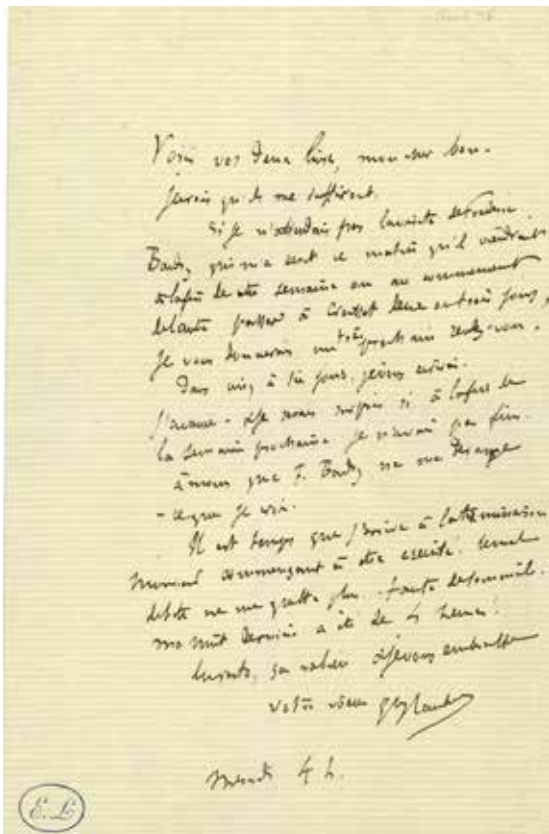 Voici vos deux livres, mon cher bon.
je crois qu'ils me suffiront.
Si je n'attendais pas la visite de Frédéric
Baudry qui m'a écrit ce matin qu'il viendrait
à la fin de cette semaine ou au commencement
de l'autre passer à Croisset deux ou trois jours,
je vous donnerais un très prochain rendez-vous.
Dans cinq à six jours, je vous écrirai.
J'avance - & je serais surpris si à la fin de
la semaine prochaine je n'avais pas fini.
à moins que F. Baudry ne me dérange
- ce que je crois.
Il est temps que j'arrive à la terminaison
Monsieur commençant à être éreinté!
de côté ne me gratte plus. - faute de sommeil.
ma nuit dernière a été de 4 heures!
Là-dessus, & je vous embrasse
votre vieux G Flaubert
Mercredi 4 h.
E. L